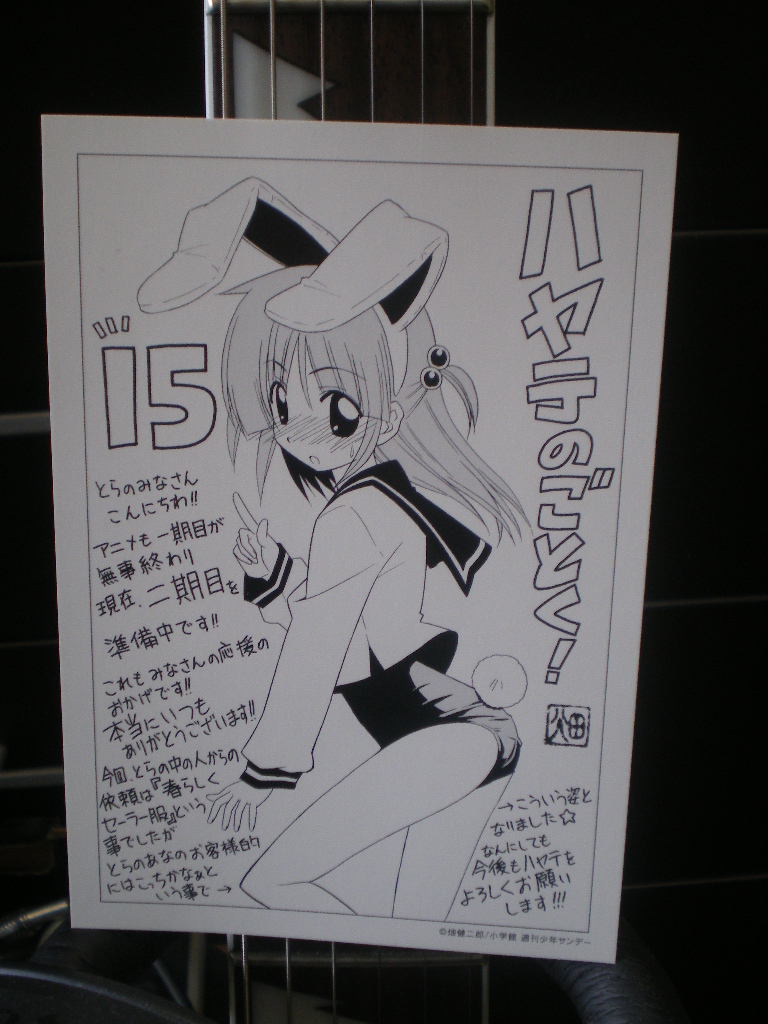 ハヤテのごとく!
畑
15
とらのみなさん
こんにちわ!!
アニメも一期目が
無事終わり
現在、二期目を
準備中です!!
これもみなさんの応援の
おかげです!!
本当にいつも
ありがとうございます!!
今回、とらの中の人からの
依頼は『春らしく
セーラー服』という
事でしたが
とらのあなのお客様的
にはこっちかなぁと
いう事で→
→こういう姿と
なりました☆
なんにしても
今後もハヤテを
よろしくお願い
します!!!
©畑健二郎/小学館 週刊少年サンデー